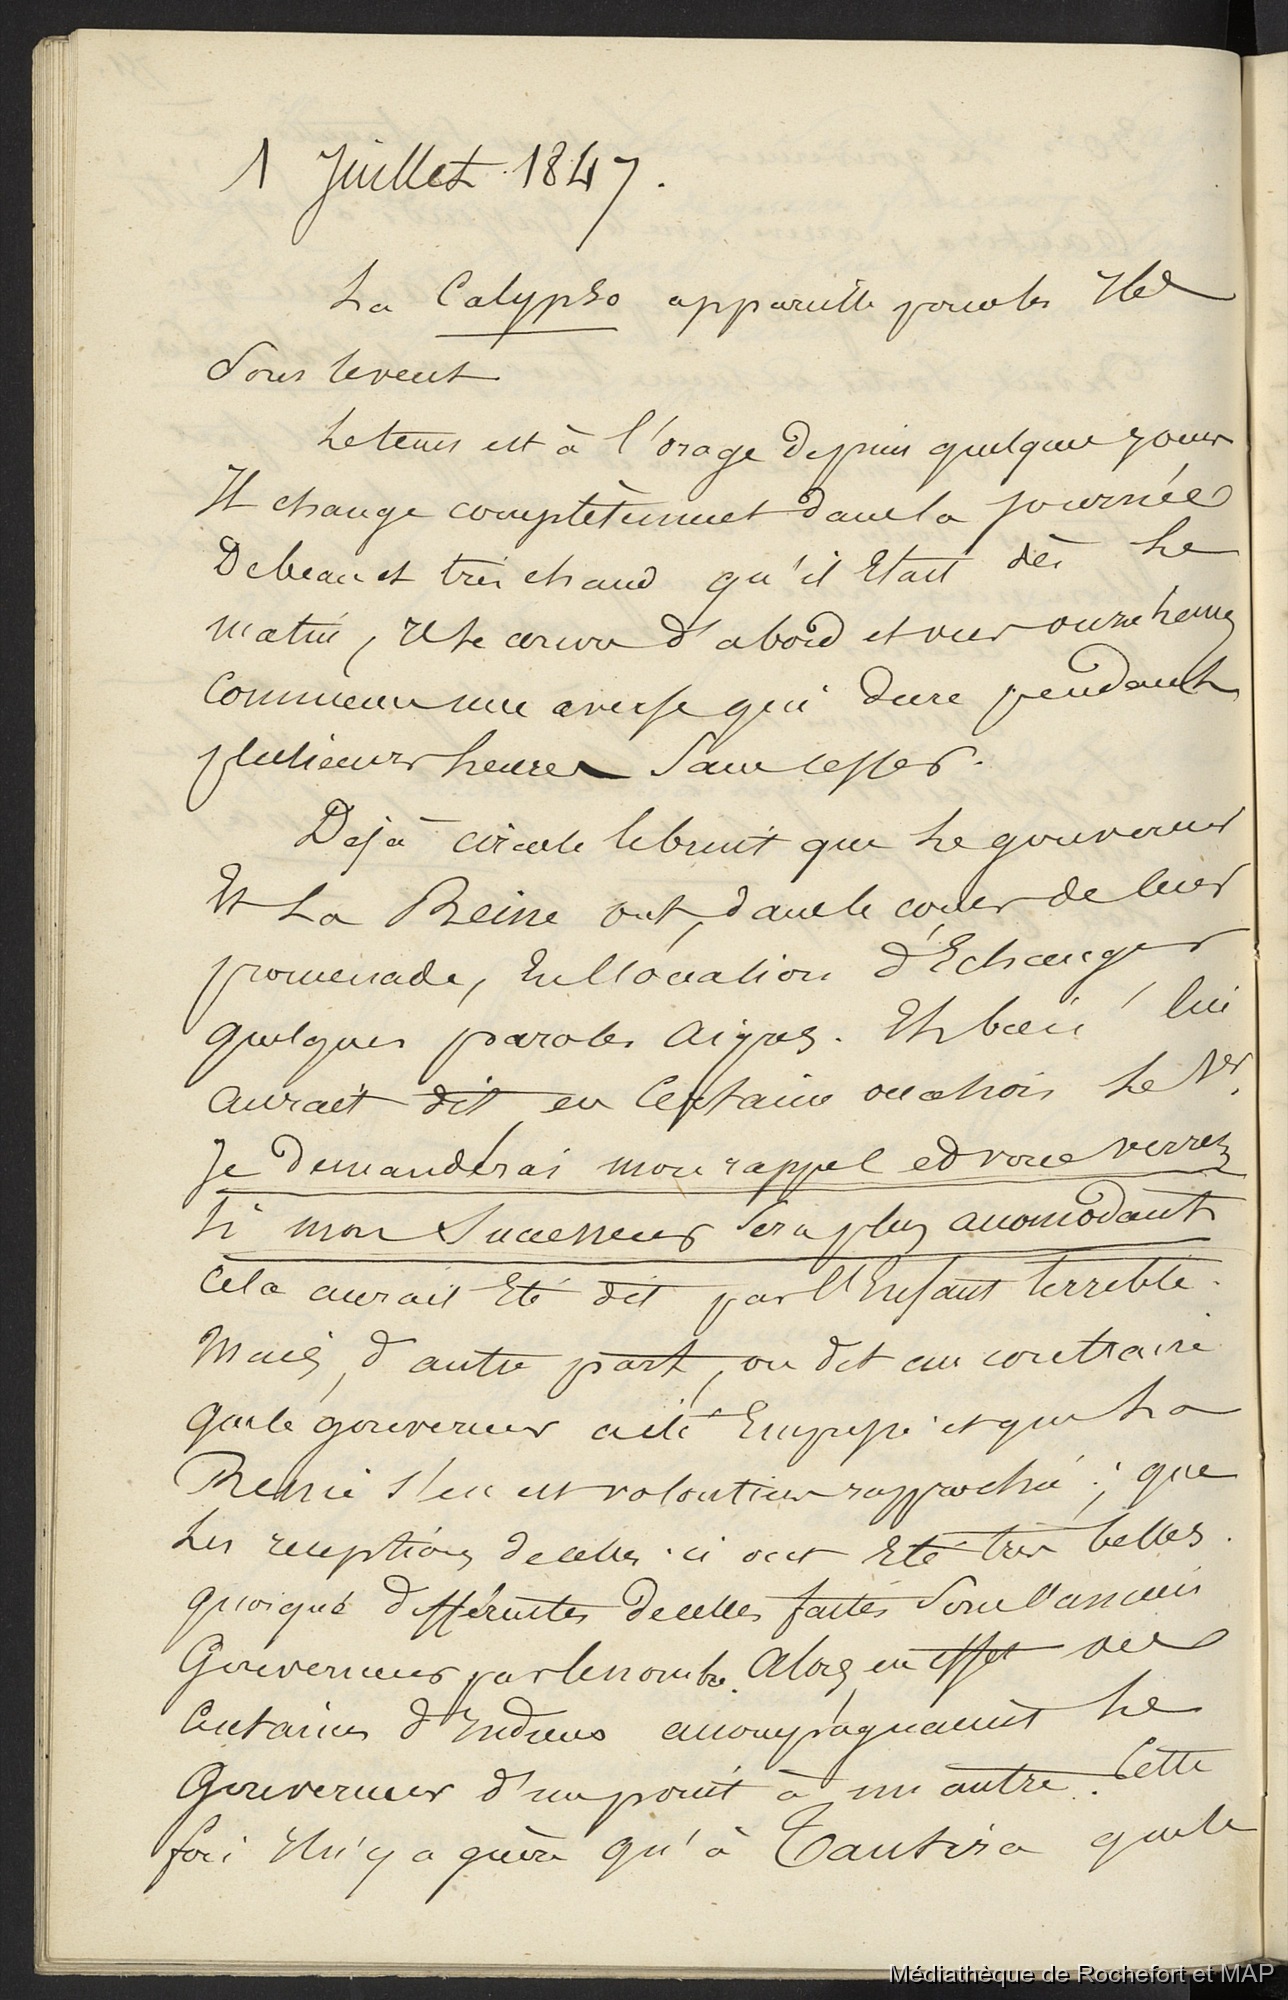 1 Juillet 1847.
La Calypso appareille pour les Iles
Sous le vent
Le tems est à l'orage depuis quelques jours
Il change complètement dans la journée
De beau et très chaud qu'il était dès le
matin, il se couvre d'abord et vers onze heures
commence une averse qui dure pendant
plusieurs heures sans cesser.
Dejà circule le bruit que le gouverneur
Et La Reine ont, dans le cours de leur
promenade, eu l'occasion d'Echanger
quelques paroles aigres. Eh bien! lui
aurait dit en certaine occasion le 1er.
Je demanderai mon rappel et vous verrez
si mon Successeur sera plus accomodant
Cela aurait Eté dit par l'Enfant terrible.
Mais, d'autre part, on dit au contraire
que le gouverneur a été Empressé et que La
Reine s'en est volontiers rapproché; que
Les receptions de celles-ci ont Eté très belles.
quoique différentes de celles faites sous l'ancien
Gouverneur par le nombre. Alors, en effet des
Centaines d'Indiens accompagnaient le
Gouverneur d'un point à un autre. Cette
fois Il n'y a guère qu'à Tautira que le
Médiathèque de Rochefort et MAP